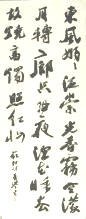 東風嫋嫋泛崇光香霧空濛
月轉廊只恐夜深花睡去
故燒高燭照紅妝